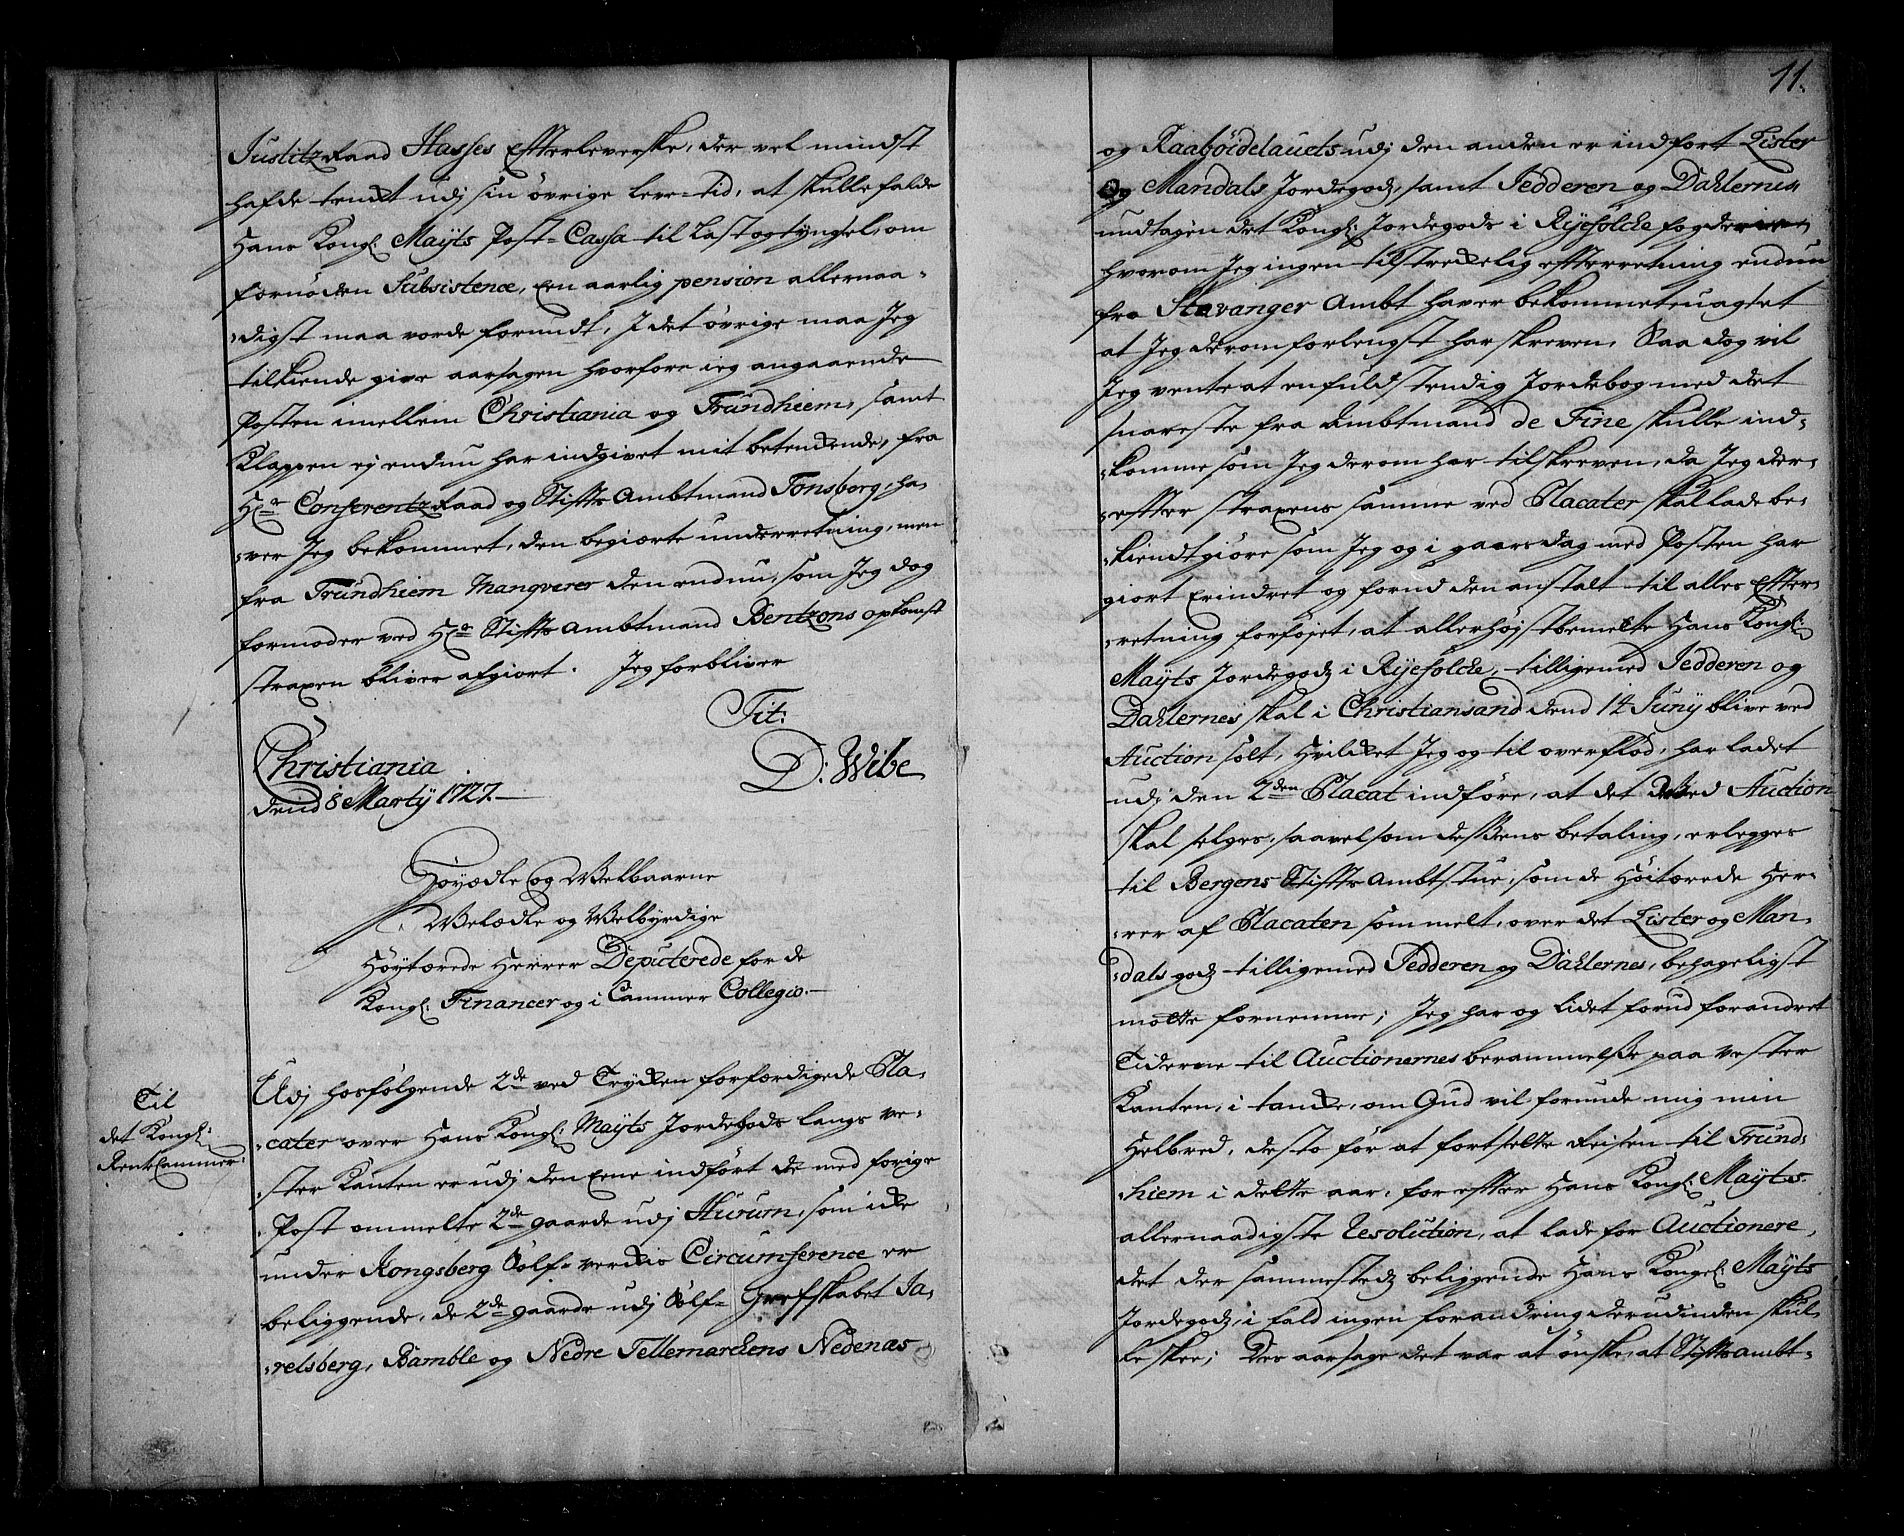 Justitz Raad Hasses Effterleverske, der vel mindst
hafde tenckt udj sin övrige leve-tid, at skulle falde
Hans Kongl: Mayts Post-Cassa til Last og tyngsel, om
fornöden Subsistence, een aarlig pension allernaa-
-digst maa vorde forundt, J det övrige maa Jeg
tilkiende give aarsagen hvorfore ieg angaaende
Posten imellem Christiania og Trundhiem, samt
Klappen ej endnu har indgivet mit betenckende, fra
Hr Conferentz Raad og Stiffts Ambtmand Tonsberg, ha-
-ver Jeg bekommet, den begierte underretning, men
fra Trundhiem Manqverer den endnu, som Jeg dog
formoder ved Hr Stiffts Ambtmand Bentzons opkomst
straxen bliver afgiort. Jeg forbliver
Tit:
Christiania
D: Wibe
dend 8 Martij 1727.
Höyædle og Welbaarne
Welædle og Welbyrdige
Höytærede Herrer Deputerede for de
Kongl: Financer og i Cammer Collegio.
Til
det Kongl:
RenteCammer:
Udj hosfölgende 2de ved Trycken forfærdigede Pla-
-cater over Hans Kongl: Mayts Jordegods langs ve-
-ster Kanten er udj den Eene indfört de med forige
Post ommelte 2de gaarde udj Hurum, som icke
under Kongsberg Sölf-verckis Circumference er
beliggende, de 2de gaarde udj Sölf- Grefskabet Ja-
-relsberg, Bamble og Nedre Tellemarckens Nedenæs
11.
og Raaböidelauets udj den anden er indfört Lister
Og Mandals Jordegodz, samt Jedderen og Dahlernes,
undtagen det Kongl: Jordegods i Ryefölcke fogderiet
hvorom Jeg ingen tilstreckelig effterretning endnu
fra Stavanger Ambt haver bekommet, uagtet
at Jeg derom forlengst har skreven, Saa dog vil
Jeg vente at en fuldstendig Jordebog med det
snareste fra Ambtmand de Fine skulle ind-
-komme som Jeg derom har tilskreven, da Jeg der-
-effter straxens samme ved Placater skal lade be-
-kiendtgiöre som Jeg og i gaars dag med Posten har
giort Erindret og forud den anstalt til alles Effter-
-retning forföjet, at allerhöjstbemelte Hans Kongl:
Mayts Jordegodz i Ryefylcke, tilligemed Jedderen og
Dahlernes skal i Christiansand dend 14 Junij blive ved
Auction solt, Hvilcket Jeg og til overflod, har ladet
udj den 2den Placat indföre, at det ved Auction
skal selges, saavelsom dessens betaling, erlegges
til Bergens Stiffts Ambtstue, som de Höitærede Her-
-rer af Placaten som melt, over det Lister og Man-
-dals godz tilligemed Jedderen og Dahlernes, behageligst
motte fornemme; Jeg har og lidet forud forandret
Tiderne til Auctionernes berammelse paa Vester
Kanten, i tancke, om Gud vil forunde mig min
Helbred, desto för at fortsette Reisen til Trund-
-hiem i dette aar, for effter Hans Kongl: Mayts
allernaadigste Resolution, at lade for Auctionere,
det der sammestedz beliggende Hans Kongel: Mayts
Jordegodz, i fald ingen forandring derudinden skul-
le skee; Des aarsage det var at önske, at Stiffts ambt-